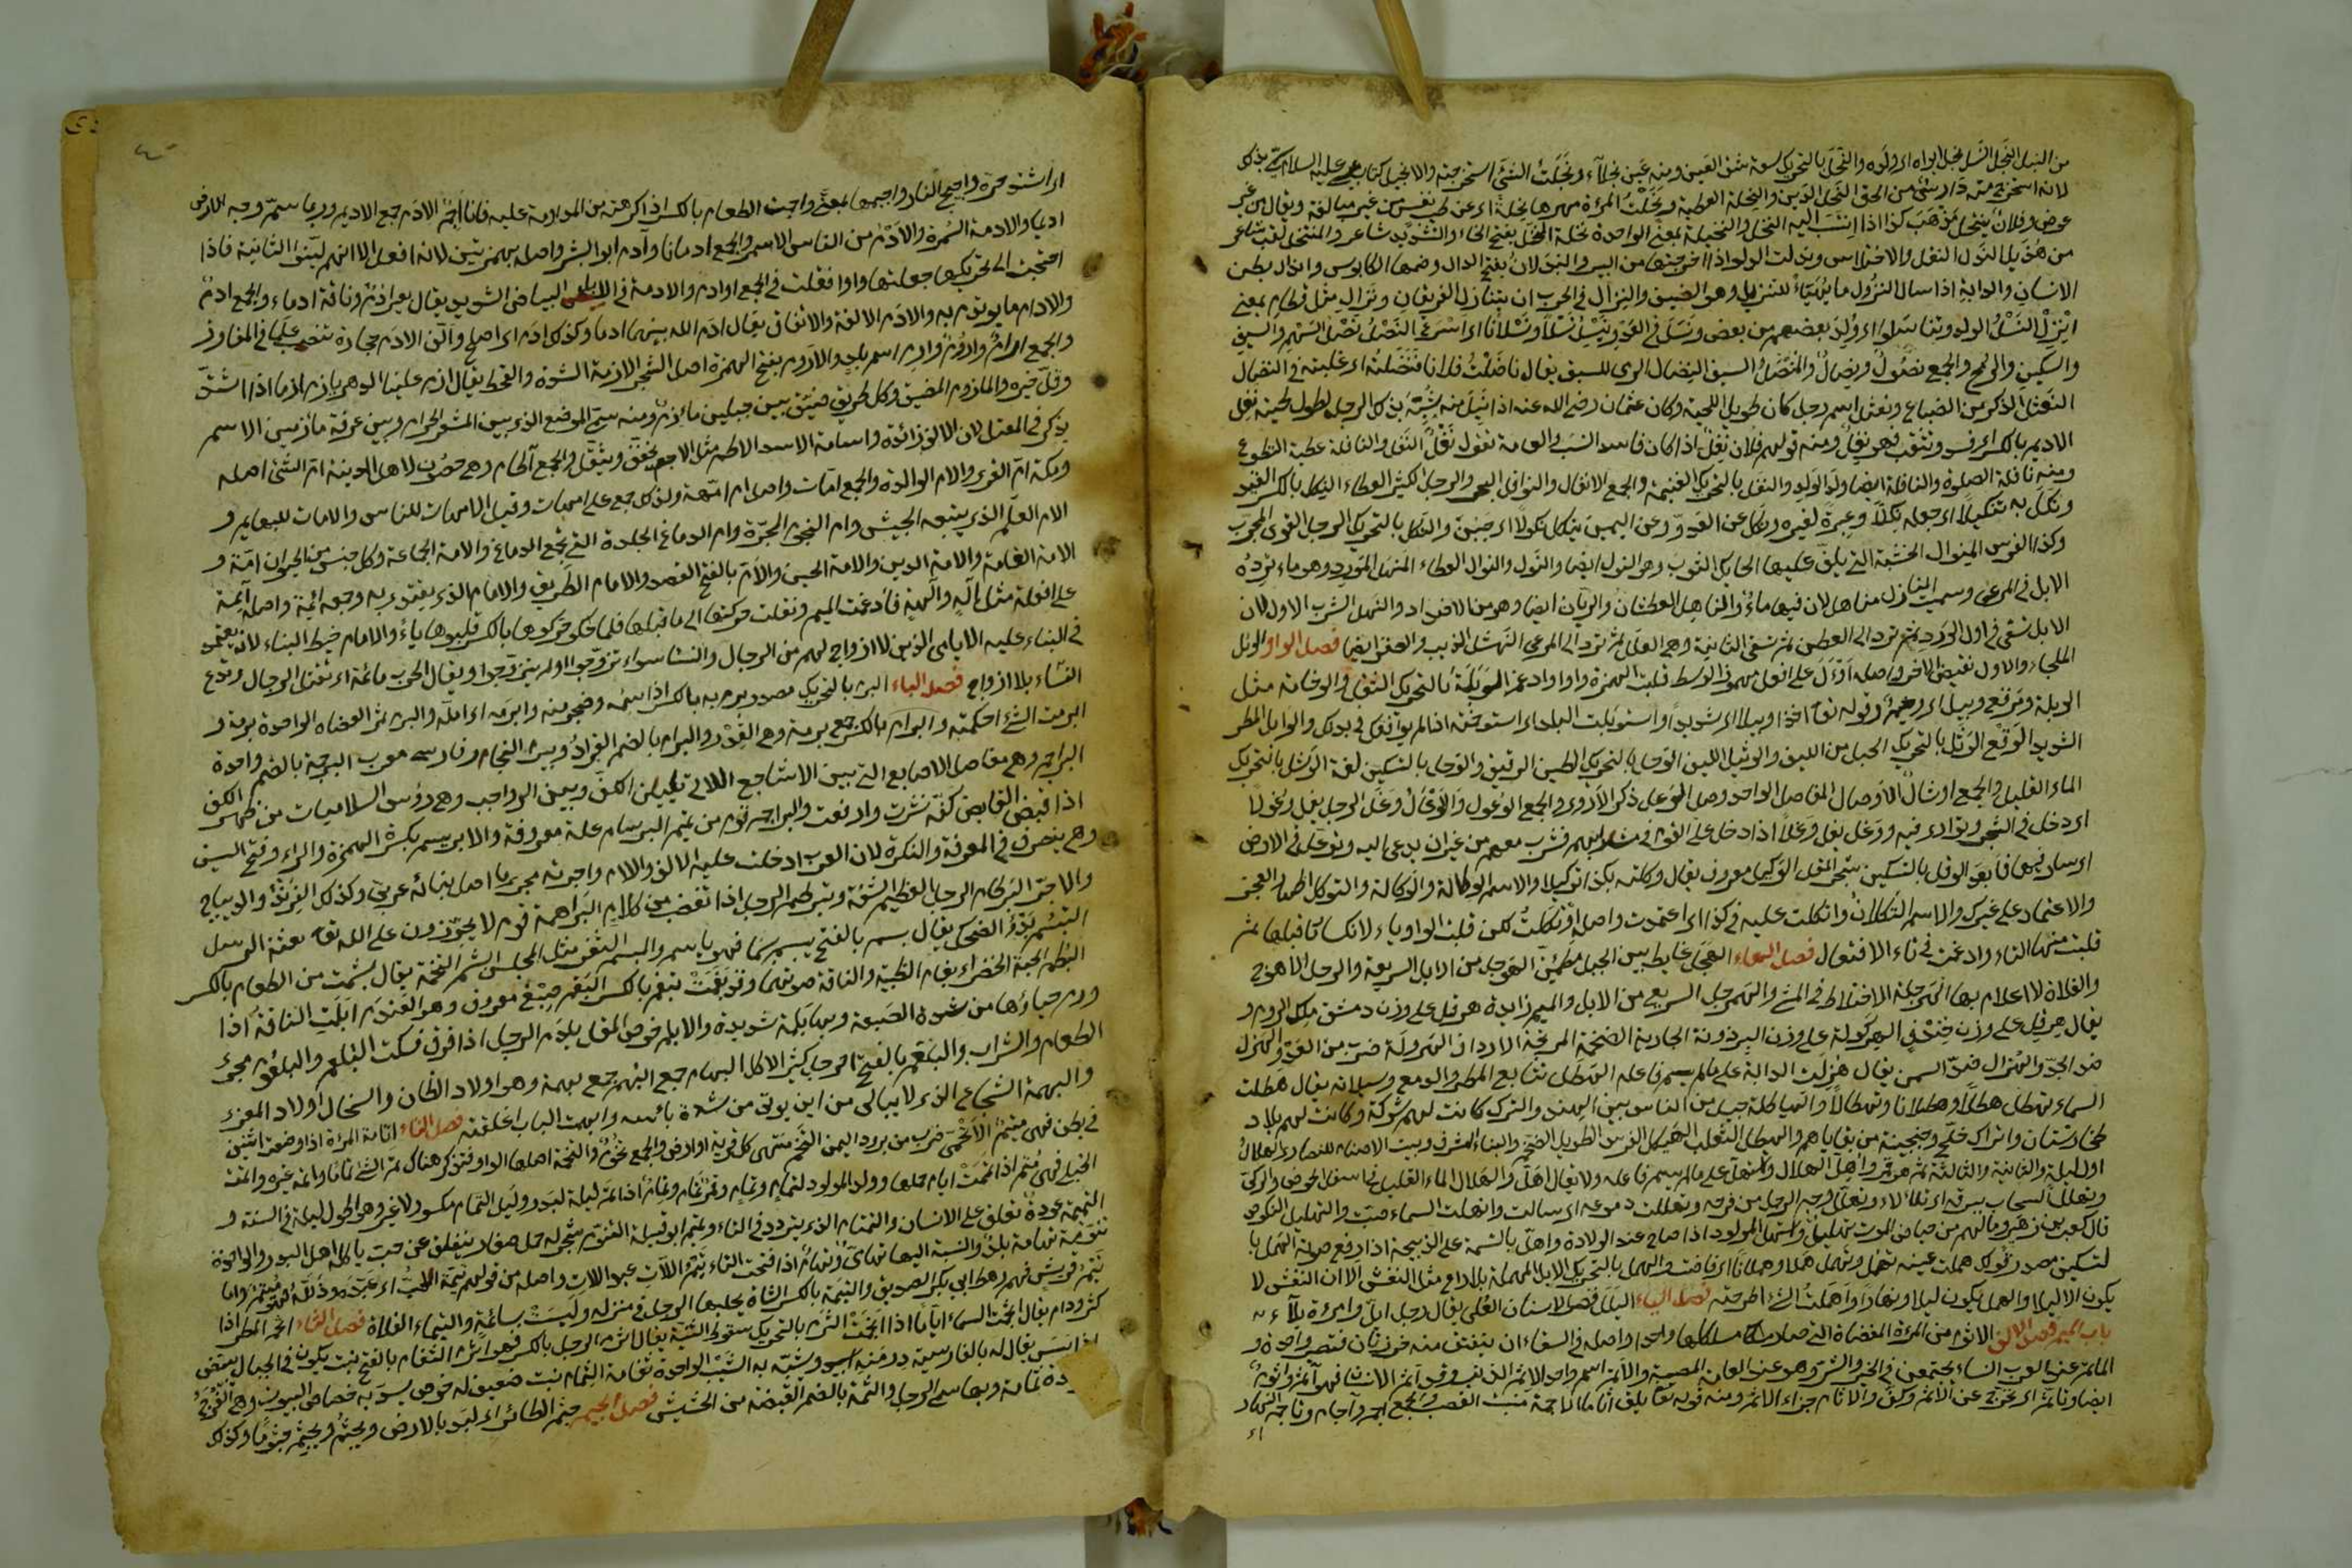 من النبل النجل النسل نجل ابواه اى ولده والنجل بالتحريك سعة شق العين ومنه عين نجلاء ونجلت الشئ استخرجته والانجيل كتاب عيسى عليه السلام
لانه استخرج منه دارس من الحق النحل الدبر والنحلة العطية ونحلت المرءة مهرها نحلة اى عن طيب نفس من غير مطالبة ويقال من غير
عوض وفلان ينتحل مذهب كذا اذا انتسب اليه النخل والنخيلة بمعنى الواحدة نخلة المنخل بفتح الخاء والتشديد شاعر والمتنخل لقب شاعر
من هذيل النقل والاختلاس الدلو اذا اخرجتها من البير والنيدلان بفتح الدال وضمها الكابوس
الانسان والدابة اذا سال النزول ما يهيّأ للنزيل وهو الضيف والنزال فى الحرب ان يتنازل الفريقان ونزال مثل قطام بمعنى
انزل النسل الولد وتناسلوا اى ولد بعضهم من بعض ونسل فى العدو ينسل نسلا ونسلانا اى اسرع النصل نصل السهم والسيف
والسكين والرمح والجمع نصول ونصال والمنصل السيف النضال الرمى للسبق يقال ناضلت فلانا فنضلته اى غلبته فى النضال
النعثل الذكر من الضباع ونعثل اسم رجل كان طويل اللحية وكان عثمان رضى الله عنه اذا نيل منه شبّه بذلك الرجل لطول لحيته نغل
الاديم بالكسر اى فسد ومنه قولهم فلان نغل اذا كان فاسد النسب والعامة تقول نغل النفل والنافلة عطية التطوع
ومنه نافلة الصلوة والنافلة ايضا ولد الولد والنفل بالتحريك الغنيمة والجمع الانفال والنوافل البحر والرجل الكثير العطاء النكل بالكسر القيد
ونكل به تنكيلا اى جعله نكالا وعبرة لغيره ونكل عن العدو وعن اليمين ينكل نكولا اى جبن والنكل بالتحريك الرجل القوى المجرب
وكذا الفرس المنوال الخشبة التى يلف عليها الحايك الثوب وهو النول ايضا والنول والنوال العطاء المنهل المورد وهو ماء ترده
الابل فى المرعى وسميت المنازل مناهل لان فيها ماء والناهل العطشان والريان ايضا وهو من الاضداد والنهل الشرب الاول لان
الابل تسقى فى اول الورد ثم ترد الى العطن ثم تسقى الثانية وهى العلل ثم ترد الى المرعى النهشل الذيب والصقر ايضا فصل الواو الوئل
الملجاء والاول نقيض الاخر واصله اوأل على افعل مهموز الوسط قلبت الهمزة واوا وادغم الوبلة بالتحريك الثقل والوخامة مثل
الوبلة ومرتع وبيل اى وخيم وقوله تعالى اخذا وبيلا اى شديدا واستوبلت البلد اى استوخمته اذا لم يوافقك فى بدنك والوابل المطر
الشديد الوقع الوثل بالتحريك الحبل من الليف والوثيل الليف الوحل بالتحريك الطين الرقيق والوحل بالتسكين لغة الوشل بالتحريك
الماء القليل والجمع اوشال الاوصال المفاصل الواحد وصل الوعل ذكر الاروى والجمع الوعول والاوعال وغل الرجل يغل وغولا
اى دخل فى الشجر وتوارى فيه ووغل يغل وغلا اذا دخل على القوم فى شرابهم فشرب معهم من غير ان يدعى اليه وتوغل فى الارض
اى سار فيها فابعد الوقل بالتسكين شجر المقل الوكيل معروف يقال وكلته بكذا توكيلا والاسم الوكالة والوكالة والتوكل اظهار العجز
والاعتماد على غيرك والاسم التكلان واتكلت عليه فى كذا اى اعتمدت واصله اوتكلت لكن قلبت الواو ياء لانكسار ما قبلها ثم
قلبت منها التاء وادغمت فى تاء الافتعال فصل الهاء الهجل غايط بين الجبل مطمئن الهوجل من الابل السريعة والرجل الاهوج
والفلاة لا اعلام بها الهرجلة الاختلاط فى المشى والهمرجل السريع من الابل والميم زايدة هرقل على وزن دمشق ملك الروم و
يقال هرقل على وزن خندف الهركولة على وزن البرذونة الجارية الضخمة المرتجة الارداف الهرولة ضرب من العدو والهزل
ضد الجد والهزال ضد السمن يقال هزلت الدابة على ما لم يسم فاعله الهطل تتابع المطر والدمع وسيلانه يقال هطلت
السماء تهطل هطلا وهطلانا وتهطالا والهياطلة جيل من الناس بين الهند والترك كانت لهم شوكة وكانت لهم بلاد
طخارستان واتراك خلج وخنجينة من بقاياهم والهيطل الثعلب الهيكل الفرس الطويل الضخم والبناء المشرف وبيت الاصنام للنصارى الهلال
اول ليلة والثانية والثالثة ثم هو قمر واهل الهلال واستهل على ما لم يسم فاعله ولا يقال اهل والهلال الماء القليل فى اسفل الحوض والركى
وتهلل السحاب ببرقه اى تلألأ وتهلل وجه الرجل من فرحه وتهللت دموعه اى سالت وانهلت السماء صبت والتهليل النكوص
قال كعب بن زهير وما لهم من حياض الموت تهليل واستهل المولود اذا صاح عند الولادة واهل بالتسمية على الذبيحة اذا رفع صوته الهمل با
لتسكين مصدر قولك هملت عينه تهمل وتهمل هملا وهملانا اى فاضت والهمل بالتحريك الابل المهملة بلا راع مثل النفش الا ان النفش لا
يكون الا ليلا والهمل يكون ليلا ونهارا واهملت الشئ اطرحته فصل الياء اليلل قصر الاسنان العلى يقال رجل ايل وامرءة يلاء
باب الميم فصل الالف الاتوم من المرءة المفضاة التى صار مسلكاها واحدا واصله فى السقاء ان ينفتق منه خرزتان فتصير واحدة و
المأتم عند العرب النساء يجتمعن فى الخير والشر وهو عند العامة المصيبة والاتم اسم واد الاثم الذنب وقد اثم الانسان فهو آثم واثيم
ايضا وتأثم اى تحرج عن الاثم وكف والاثام جزاء الاثم ومنه قوله تعالى يلق اثاما الاجمة منبت القصب والجمع اجم وآجام وتأجم النهار
اى اشتد حره واجيج النار واجيمها بمعنى واجمت الطعام بالكسر اذا كرهته من المداومة عليه فانا آجم الادم جمع الاديم وربما سمى وجه الارض
اديما والادمة السمرة والآدم من الناس الاسمر والجمع ادمان وآدم ابو البشر واصله بهمزتين لانه افعل الا انهم لينوا الثانية فاذا
احتجت الى تحريكها جعلتها واوا فقلت فى الجمع اوادم والادمة فى الابل البياض الشديد يقال بعير آدم وناقة ادماء والجمع ادم
والادام ما يؤتدم به والادم الالفة والاتفاق يقال ادم الله بينهما ادما وكذلك آدم اى اصلح والف الارم حجارة تنصب علما فى المفاوز
والجمع آرام واروم وارم اسم بلد والاروم بفتح الهمزة اصل الشجر الازمة الشدة والقحط يقال ازم علينا الدهر يازم ازما اذا اشتد
وقل خيره والمازم المضيق وكل طريق ضيق بين جبلين مأزم ومنه سمى الموضع الذى بين المشعر الحرام وبين عرفة مأزمين الاسم
يذكر فى المعتل لان الالف زائدة واسامة الاسد الاطم مثل الاجم يخفف ويثقل والجمع آطام وهى حصون لاهل المدينة ام الشئ اصله
ومكة ام القرى والام الوالدة والجمع امات واصل ام امهة ولذلك جمع على امهات وقيل الامهات للناس والامات للبهايم و
الام العلم الذى يتبعه الجيش وام النجوم المجرة وام الدماغ الجلدة التى تجمع الدماغ والامة الجماعة وكل جنس من الحيوان امة و
الامة القامة والامة الدين والامة الحين والام بالفتح القصد والامام الطريق والامام الذى يقتدى به وجمعه ائمة واصله أأممة
على افعلة مثل اله وآلهة فادغمت الميم ونقلت حركتها الى ما قبلها فلما حركوها بالكسر قلبوها ياء والامام خيط البناء لانه يعتمد
فى البناء عليه الايامى الذين لا ازواج لهم من الرجال والنساء سواء تزوجوا او لم يتزوجوا ويقال الحرب مأيمة اى تقتل الرجال وتدع
النساء بلا ازواج فصل الباء البرم بالتحريك مصدر برم به بالكسر اذا سئمه وضجر منه وابرمه اى امله والبرم ثمر العضاه الواحدة برمة و
ابرمت الشئ احكمته والبرام بالكسر جمع برمة وهى القدر والبرام بالضم القراد وبيرم النجار وفارسى معرب البرجمة بالضم واحدة
البراجم وهى مفاصل الاصابع التى بين الاشاجع اللاتى تلين الكف وبين الرواجب وهى رؤس السلاميات من ظهر الكف
اذا قبض القابض كفه نشزت وارتفعت والبراجم قوم من تميم البرسام علة معروفة والابريسم بكسر الهمزة والراء وفتح السين
وهو ينصرف فى المعرفة والنكرة لان العرب ادخلت عليه الالف واللام واجرته مجرى ما اصل بنائه عربى وكذلك الفرند والديباج
والاجر البرطام الرجل العظيم الشفة وتبرطم الرجل اذا تغضب من كلام البراهمة قوم لا يجوزون على الله تعالى بعثة الرسل
التبسم بدؤ الضحك يقال بسم بالفتح يبسم بسما فهو باسم والمبسم الثغر مثل المجلس البشم التخمة يقال بشمت من الطعام بالكسر
البطم الحبة الخضراء بغام الظبية والناقة صوتهما وقد بغمت تبغم بالكسر البقم صبغ معروف وهو العندم ابلمت الناقة اذا
ورم حياؤها من شدة الضبعة وبها بلمة شديدة والابلم خوص المقل بلدم الرجل اذا فرق فسكت البلعم والبلعوم مجرى
الطعام والشراب والبلعم بالفتح الرجل كثير الاكل البهام جمع البهم جمع بهمة وهو اولاد الضان والسخال اولاد المعز
والبهمة الشجاع الذى لا يبالى من اين يوتى من شدة بأسه وابهمت الباب اغلقته فصل التاء اتأمت المرأة اذا وضعت اثنين
فى بطن فهى متئم الاتحمى ضرب من برود اليمن التخم منتهى كل قرية او ارض والجمع تخوم والتخمة اصلها الواو فتذكر هناك تم الشئ تماما واتمه غيره واتمت
الحبلى فهى متم اذا تمت ايام حملها وولد المولود لتمام وتمام وقمر تمام وتمام اذا تم ليلة البدر وليل التمام مكسور لا غير وهو اطول ليلة فى السنة و
التميمة عوذة تعلق على الانسان والتمتام الذى يتردد فى التاء وتميم ابو قبيلة التنوم شجر له حمل صغار ينفلق عن حب ياكله اهل البدو الواحدة
تنومة تهامة بلد والنسبة اليها تهامى وتهام اذا فتحت التاء تيم اللات عبد اللات واصله من قولهم تيمه الحب اى عبده وذلله فهو متيم واما
تيم قريش فهم رهط ابى بكر الصديق والتيمة بالكسر الشاة يحلبها الرجل فى منزله وليست بسائمة والتيماء الفلاة فصل الثاء اثجم المطر اذا
كثر ودام يقال اثجمت السماء اياما اذا انجمت الثرم بالتحريك سقوط الثنية يقال ثرم الرجل بالكسر فهو اثرم الثغام بالفتح نبت يكون فى الجبال يبيض
اذا يبس يقال له بالفارسية درمنه اسپيد ويشبه به الشيب الواحدة ثغامة الثمام نبت ضعيف له خوص يسد به خصاص البيوت
ثمامة وبها سمى الرجل والثمة بالضم القبضة من الحشيش فصل الجيم جثم الطائر اى لبد بالارض ويجثم ويجثم جثوما وكذلك